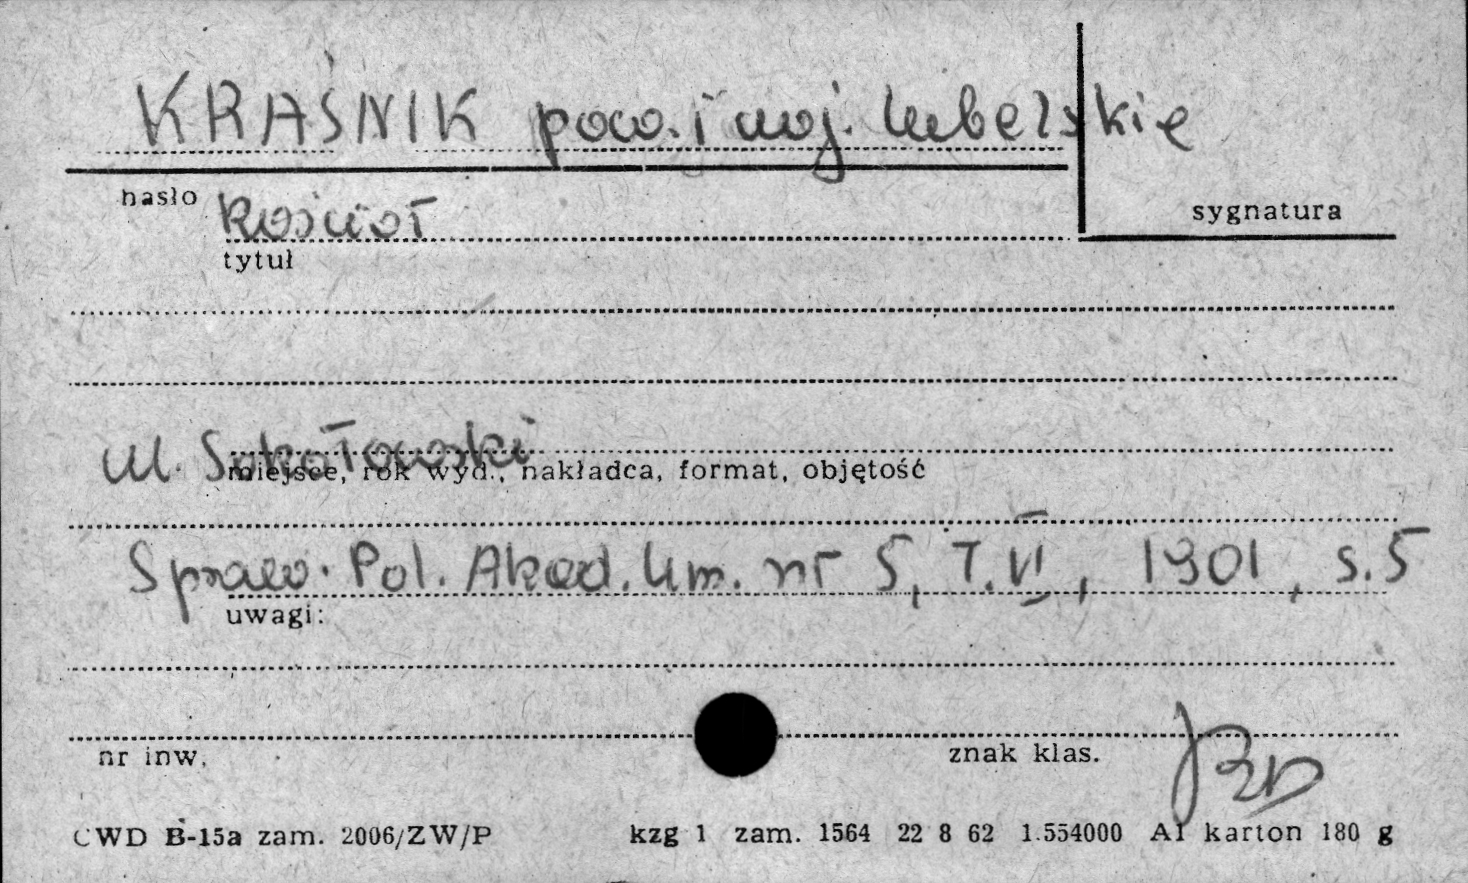 KRAŚNIK pow. i woj. lubelskie
hasło
sygnatura
Kościół
tytuł
M. Sokołowski
miejsce, rok wyd., nakładca, format, objętość
Spraw. Pol. Akad. Um. nr 5, T. VI, 1901, s. 5
uwagi:
nr inw.
znak klas.
CWD B-15a zam. 2006/ZW/P
kzg 1 zam. 1564 22 8 62 1.554000 A1 karton 180 g